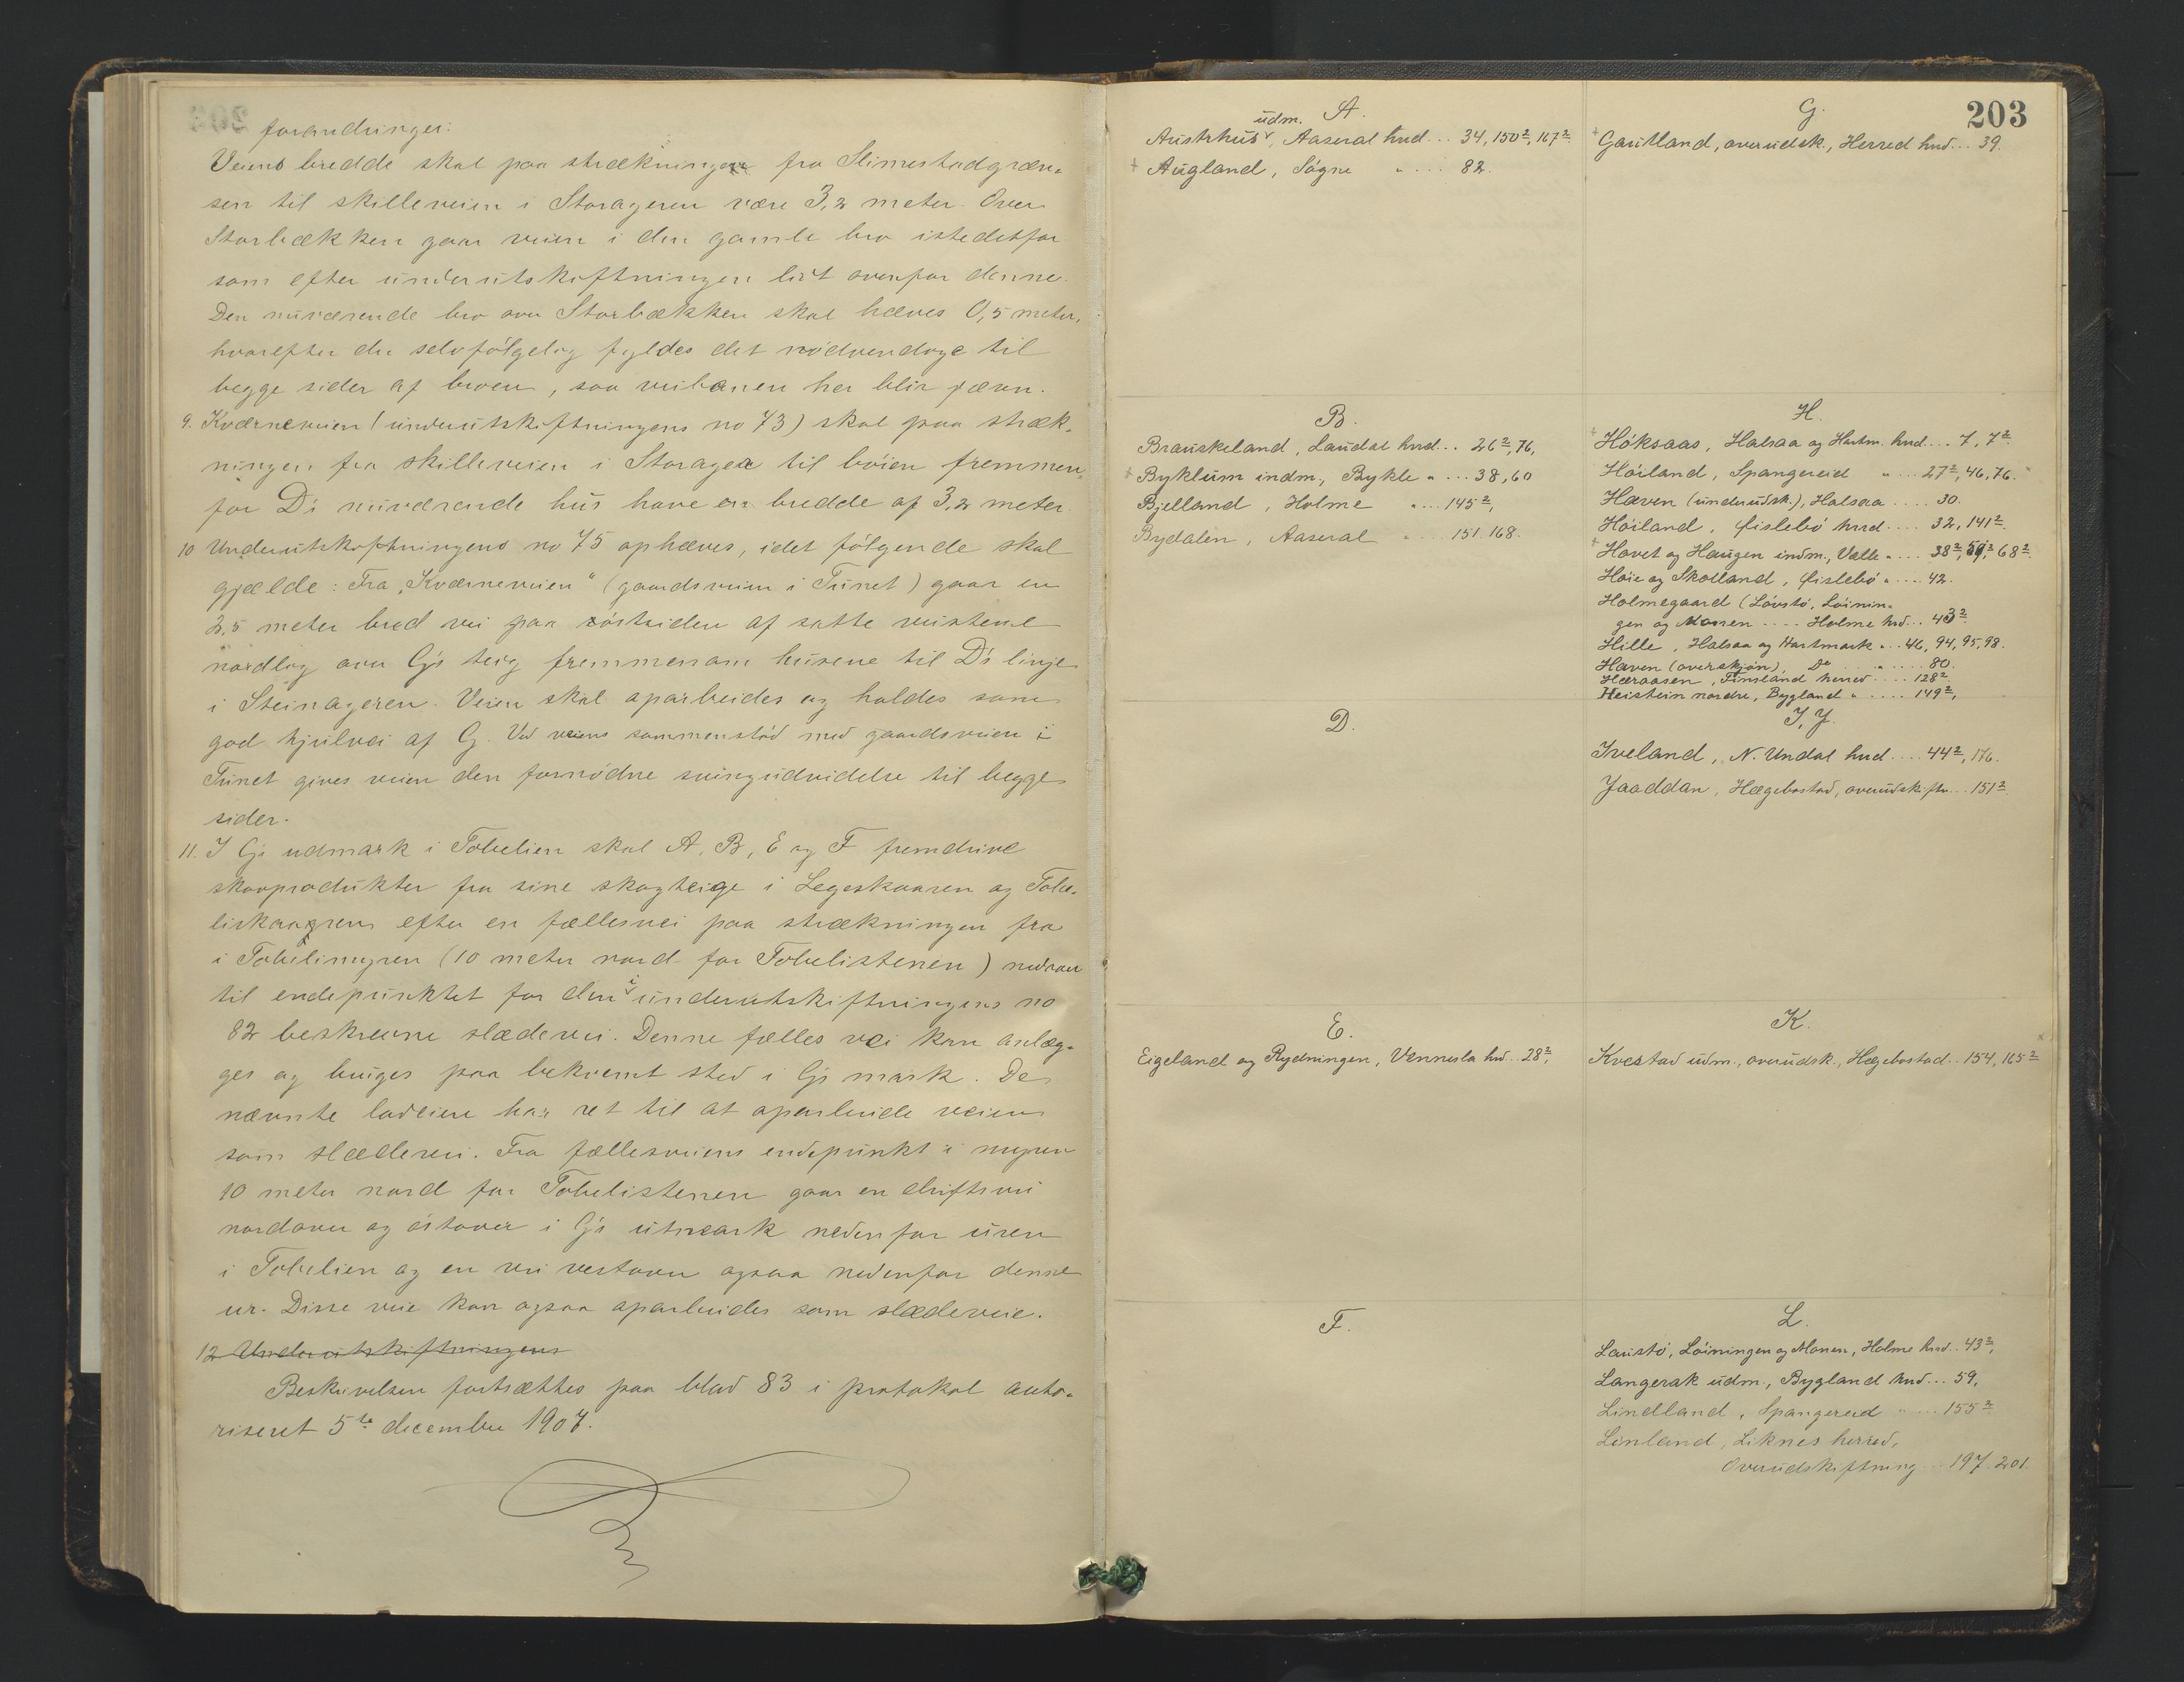 forandringer:
Veiens bredde skal paa strækningen fra Slimestadgræn-
sen til skilleveien i Storageren være 3,2 meter. Over
Storbækken gaar veien i den gamle bro istedetfor
som efter underutskiftningen litt ovenfor denne.
Den nuværende bro over Storbækken skal hæves 0,5 meter,
hvorefter der selvfölgelig fyldes det nödvendige til
begge sider af broen, saa veibanen her blir jævn.
9. Kværneveien (underutskiftningens no 73) skal paa stræk-
ningen fra skilleveien i Storageren til böien fremmen-
for D's nuværende hus have en bredde af 3,2 meter.
10 Underutskiftningens no 75 ophæves, idet fölgende skal
gjælde: Fra „Kværneveien" (gaardsveien i Tunet) gaar en
2,5 meter bred vei paa östsiden af satte veistene
nordlig over G's teig fremmenom husene til D's linje
i Steinageren. Veien skal oparbeides og holdes som
god hjulvei af G. Ved veiens sammenstöd med gaardsveien i
Tunet gives veien den fornödne svingudvidelse til begge
sider.
11. I G's udmark i Tobelien skal A, B, E og F fremdrive
skovprodukter fra sine skogteige i Legeskaaren og Tobe-
liskaaren efter en fællesvei paa strækningen fra
i Tobelimyren (10 meter nord for Tobelistenen) nedover
til endepunktet for den i underutskiftningens no
82 beskrevne slædevei. Denne fælles vei kan anlæg-
ges og bruges paa bekvemt sted i G's mark. De
nævnte lodeiere har ret til at oparbeide veien
som slædevei. Fra fællesveiens endepunkt i myren
10 meter nord for Tobelistenen gaar en driftsvei
nordover og östover i G's utmark nedenfor uren
i Tobelien og en vei vestover ogsaa nedenfor denne
ur. Disse veie kan ogsaa oparbeides som slædeveie.
12 Underutskiftningens
Beskrivelsen fortsættes paa blad 83 i protokol auto-
riseret 5te december 1907.
203
A.
udm.
Austrhus, Aaseral hrd... 34, 150², 167².
+ Augland, Sögne " .... 82.
B.
Brauskeland, Laudal hrd... 26², 76,
+ Byklum indm., Bykle " ... 38, 60
Bjelland, Holme " ... 145²,
Bydalen, Aaseral " .... 151. 168.
D.
E.
Eigeland og Rydningen, Vennesla hrd.. 28²,
F.
G.
+ Gautland, overudsk., Herred hrd... 39.
H.
+ Höksaas, Halsaa og Hartm. hrd... 7, 7²
Höiland, Spangereid " ... 27², 46, 76.
Haven (underudsk.), Halsaa .... 30.
Höiland, Öislebö hrd.... 32, 141².
+ Hovet og Haugen indm., Valle " .... 38², 59², 68².
Höie og Skolland, Öislebö " .... 42.
Holmegaard (Lövstö, Löinin-
gen og Monen .... Holme hrd... 43²
Hille, Halsaa og Hartmark " .. 46, 94, 95, 98.
Haven (overskjön), Do " ..... 80.
Hæraasen, Finsland herred .... 128²
Heistein nordre, Bygland " .... 149²,
I, J.
Iveland, N. Undal hrd.... 44², 176.
Jaaddan, Hægebostad, overudskiftn... 151²
K.
Kvestad udm., overudsk., Hægebostad.. 154, 165²
L.
Laustö, Löiningen og Monen, Holme hrd.. 43²,
Langerak udm., Bygland hrd... 59,
Lindland, Spangereid " .... 155²
Linland, Liknes herred,
Overudskiftning ... 197. 201.